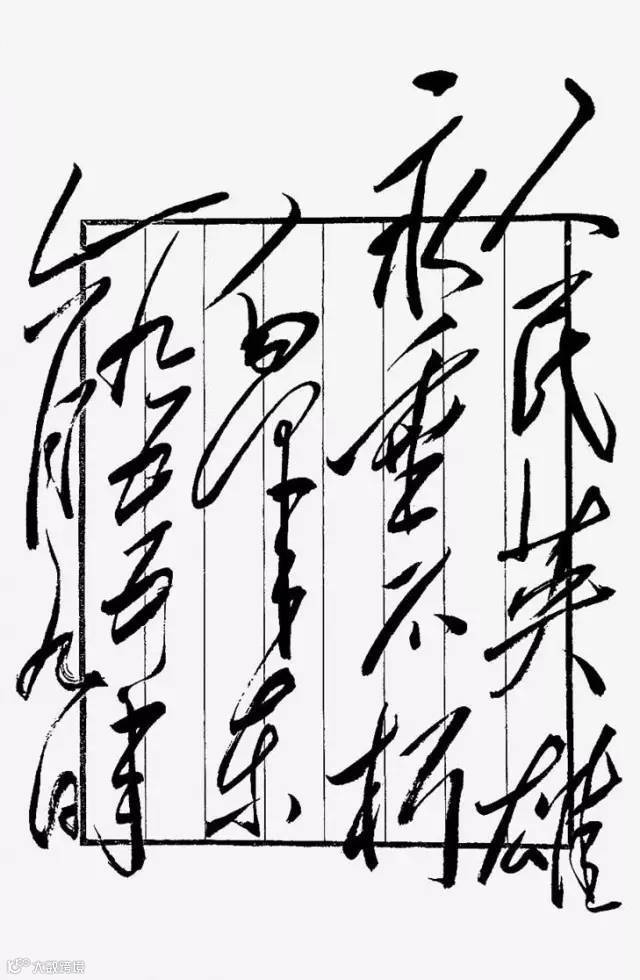 人民英雄
永垂不朽
毛泽东
一九五五年
六月九日
大数跨境